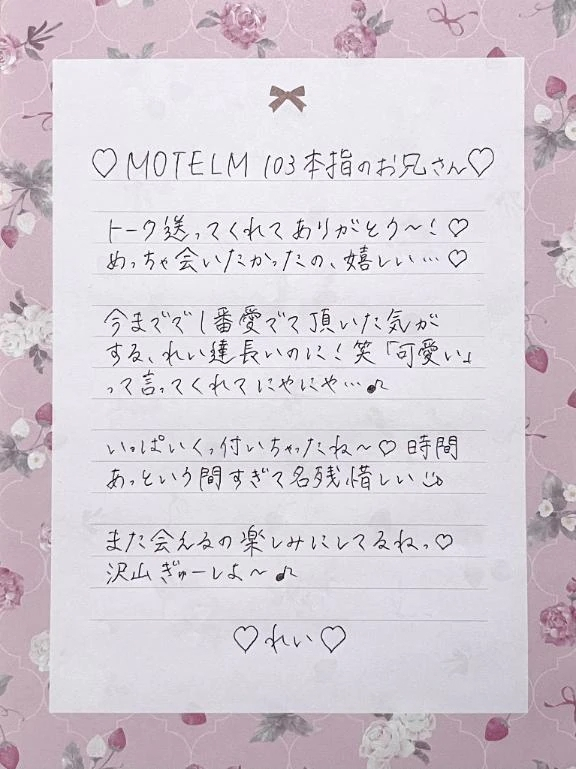 ♡MOTELM 103本指のお兄さん♡
トーク送ってくれてありがとう〜！♡
めっちゃ会いたかったの、嬉しい…♡
今までで1番愛でて頂いた気が
する、れい達長いのに！笑「可愛い」
って言ってくれてにやにや…♪
いっぱいくっ付いちゃったね〜♡時間
あっという間すぎて名残惜しい
また会えるの楽しみにしてるねっ♡
沢山ぎゅーしよ〜♪
♡れい♡